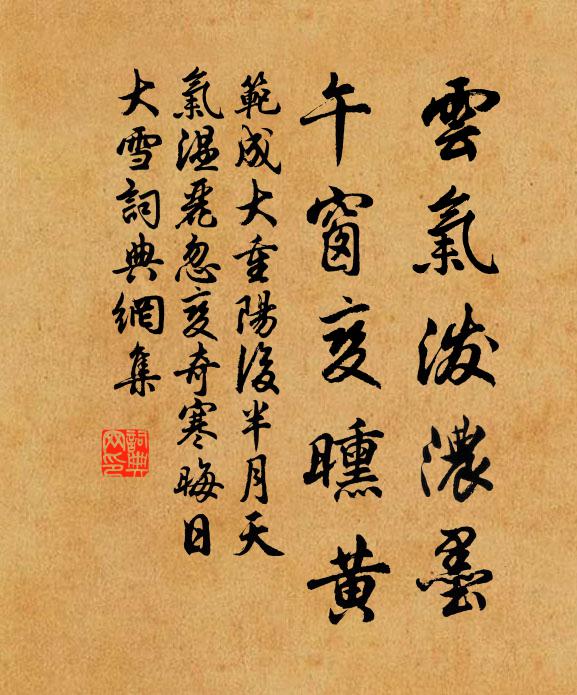 雲氣泼濃墨
午窗变曛黄
範成大重陽後半月天
氣温麗忽变奇寒晦日
大雪詞典網集
詞典网印